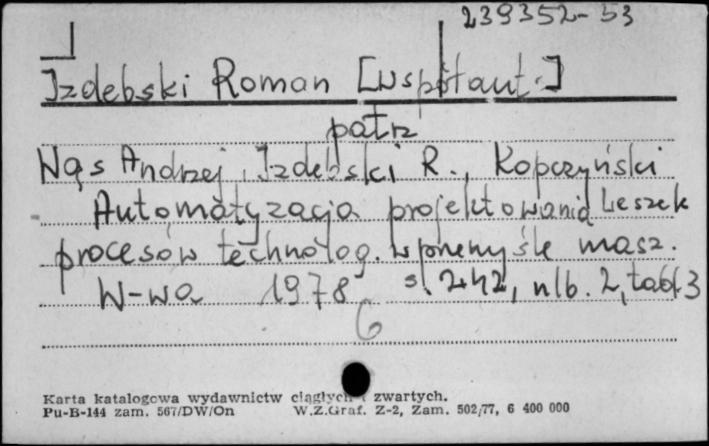 239352-53
Izdebski Roman [współaut.]
patrz
Wąs Andrzej, Izdebski R., Kopczyński
Automatyzacja projektowania Leszek
procesów technolog. w przemyśle masz.
W-wa 1978 s. 242, nlb. 2, tabl. 3
6
Karta katalogowa wydawnictw ciągłych i zwartych.
Pu-B-144 zam. 567/DW/On W.Z.Graf. Z-2, Zam. 502/77, 6 400 000